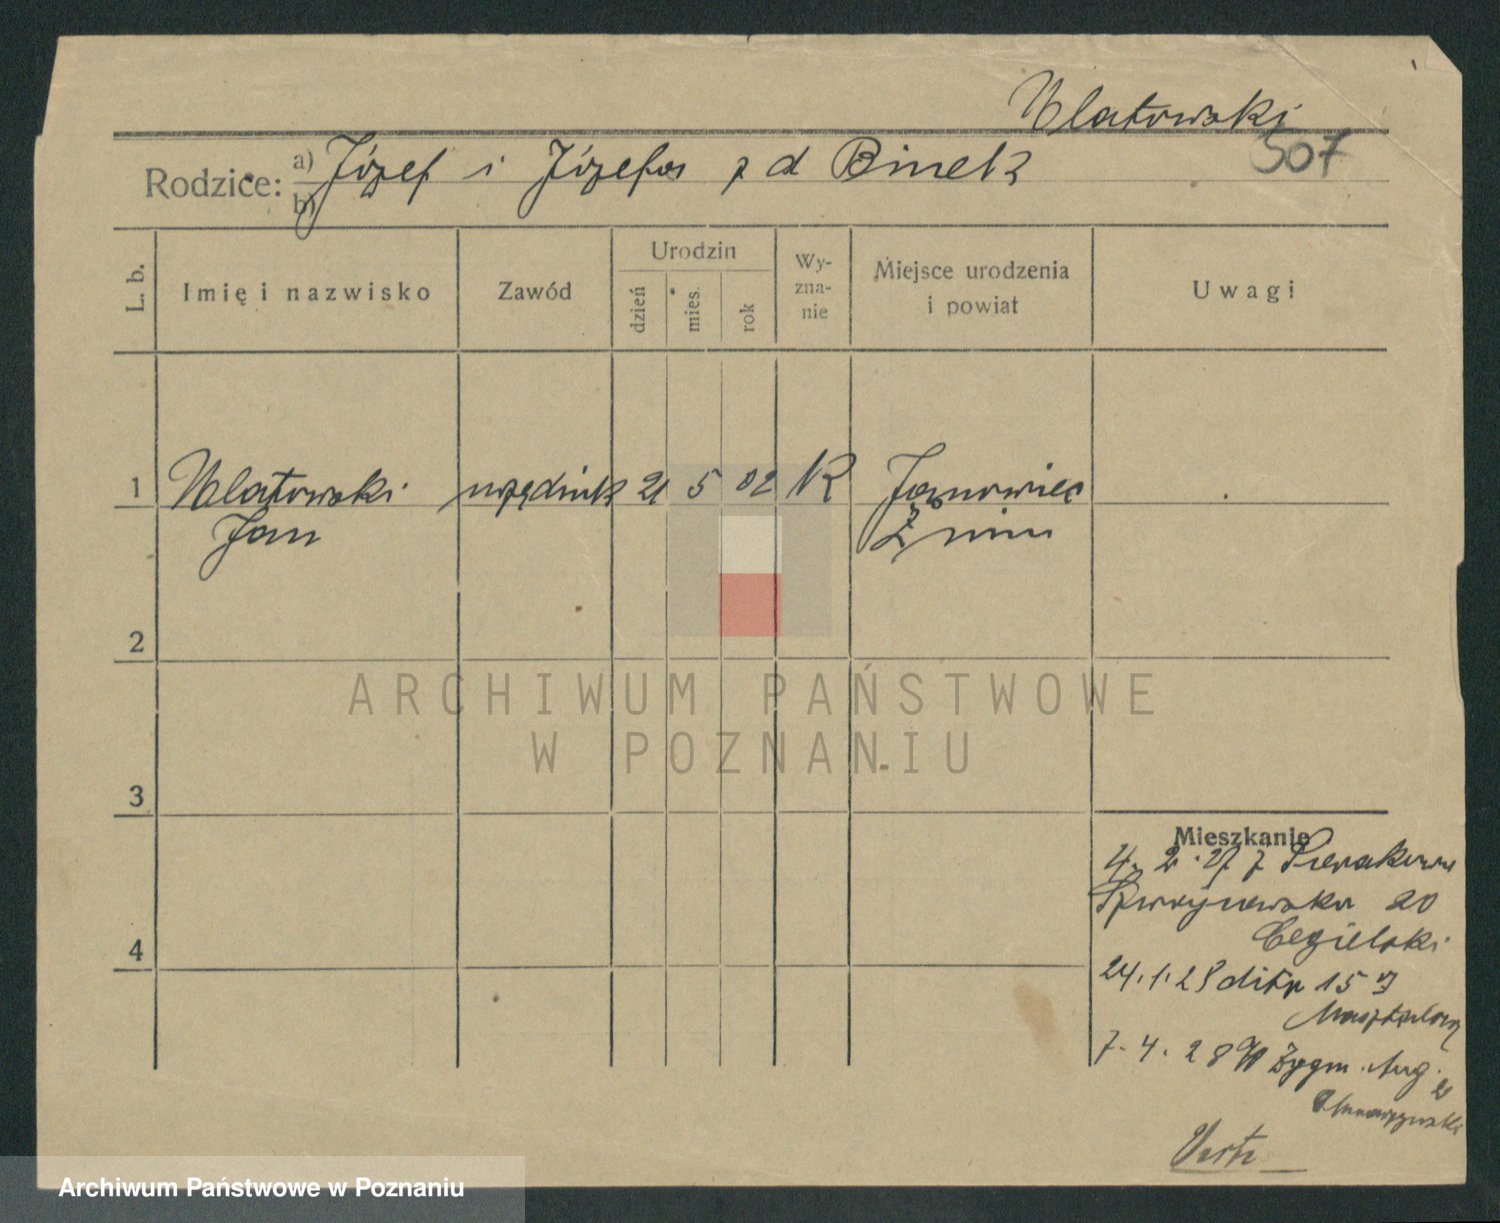 Ulatowski
507
Rodzice: a) Józef i Józefa z d Binek
b)
L. b.
Imię i nazwisko
Zawód
Urodzin
dzień
mies.
rok
Wy-
zna-
nie
Miejsce urodzenia
i powiat
Uwagi
1 Ulatowski urzędnik 21 5 02 K Janowiec
Jan Żnin
2
3
4
ARCHIWUM PAŃSTWOWE
W POZNANIU
Mieszkanie
4. 2. 27 z Sierakowa
20
Cegielski
24.1.28 dito 15
7. 4. 28 Zygm. Aug.
Verte
Archiwum Państwowe w Poznaniu